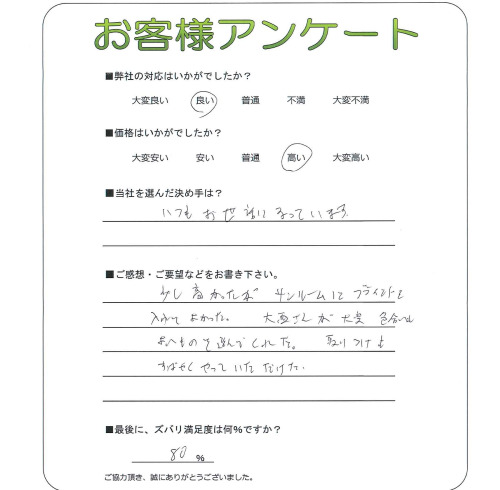 お客様アンケート
■弊社の対応はいかがでしたか？
大変良い 良い 普通 不満 大変不満
■価格はいかがでしたか？
大変安い 安い 普通 高い 大変高い
■当社を選んだ決め手は？
いつもお世話になっています。
■ご感想・ご要望などをお書き下さい。
少し高かったが サンルームに ブラインドを
入れてよかった。 大変 色合いの
よいものを選んでくれた。 取りつけも
すばやくやっていただけた。
■最後に、ズバリ満足度は何%ですか？
80 %
ご協力頂き、誠にありがとうございました。